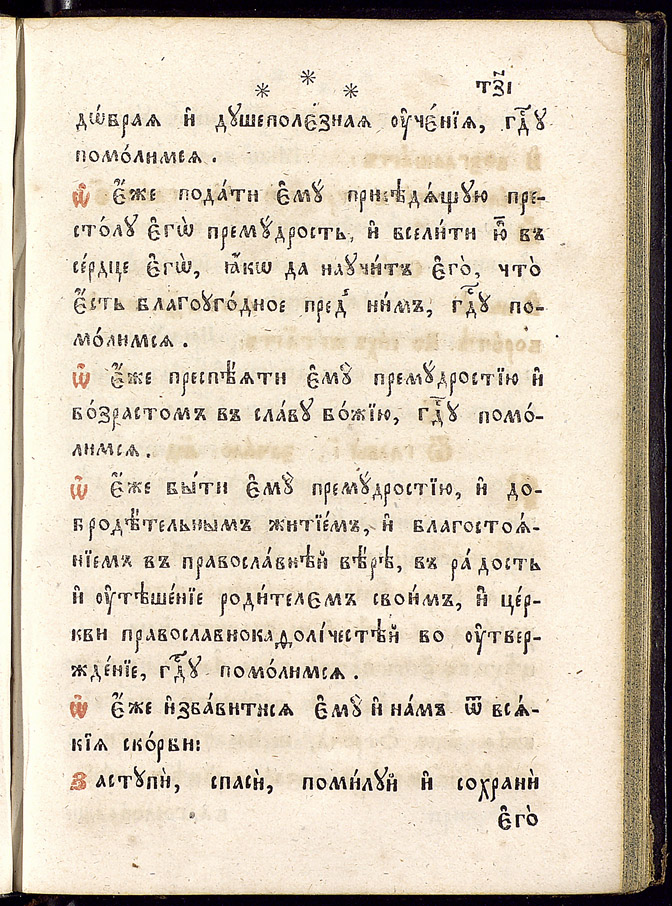 * * * тз҃і
дѡ́браѧ и҆ дꙋшеполе́знаѧ ᲂу҆че́нїѧ, гдⷭ҇ꙋ
помо́лимсѧ.
Ѡ҆ є҆́же пода́ти є҆мꙋ̀ присѣдѧ́щꙋю пре-
сто́лꙋ є҆гѡ̀ премꙋ́дрость, и҆ всели́ти ю҆̀ въ
се́рдце є҆гѡ̀, ꙗ҆́кѡ да наꙋчи́тъ є҆го̀, что̀
є҆́сть благоꙋго́дное пред̾ ни́мъ, гдⷭ҇ꙋ по-
мо́лимсѧ.
Ѡ҆ є҆́же преспѣ́ѧти є҆мꙋ̀ премꙋ́дростїю и҆
во́зрастомъ въ сла́вꙋ бо́жїю, гдⷭ҇ꙋ помо́-
лимсѧ.
Ѡ҆ є҆́же бы́ти є҆мꙋ̀ премꙋ́дростїю, и҆ до-
бродѣ́тельнымъ житїе́мъ, и҆ благостоѧ́-
нїемъ въ правосла́внѣй вѣ́рѣ, въ ра́дость
и҆ ᲂу҆тѣше́нїе роди́телемъ свои́мъ, и҆ це́р-
кви православнокаѳолі́честѣй во ᲂу҆твер-
жде́нїе, гдⷭ҇ꙋ помо́лимсѧ.
Ѡ҆ є҆́же и҆зба́витисѧ є҆мꙋ̀ и҆ на́мъ ѿ всѧ́-
кїѧ ско́рби:
Застꙋпѝ, спасѝ, поми́лꙋй и҆ сохранѝ
є҆го̀